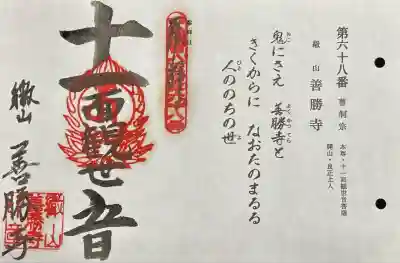 第六十八番 曹洞宗
本尊・十一面観世音菩薩
開山・良正上人
嶽山 善勝寺
鬼にさえ 善勝寺と
きくからに なおたのまるる
人ののちの世
十一面観世音
嶽山
善勝寺